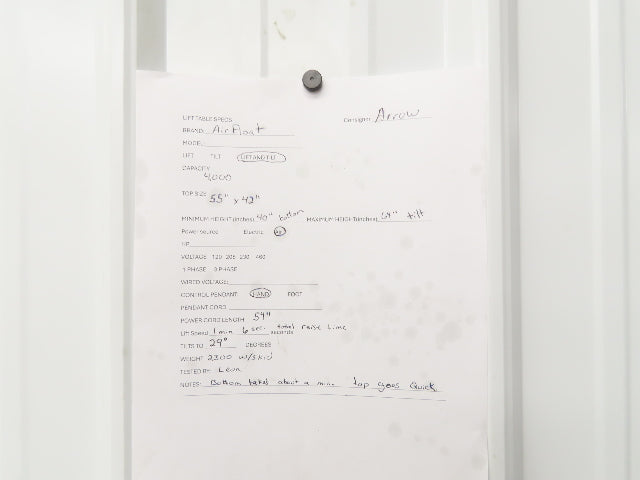 LIFT TABLE SPECS Consignor: Arrow
BRAND: Air Float
MODEL:
LIFT TILT LIFT AND TILT
CAPACITY
4,000
TOP SIZE 55" x 42"
MINIMUM HEIGHT(inches) 40" bottom MAXIMUM HEIGHT(inches) tilt
Power source Electric
HP
VOLTAGE 120 208 230 460
1 PHASE 3 PHASE
WIRED VOLTAGE:
CONTROL PENDANT HAND FOOT
PENDANT CORD
POWER CORD LENGTH 54"
Lift Speed 1 min 6 sec. total raise time
seconds
TILTS TO 29° DEGREES
WEIGHT 2300 w/skid
TESTED BY
NOTES: Bottom takes about a min. top goes Quick